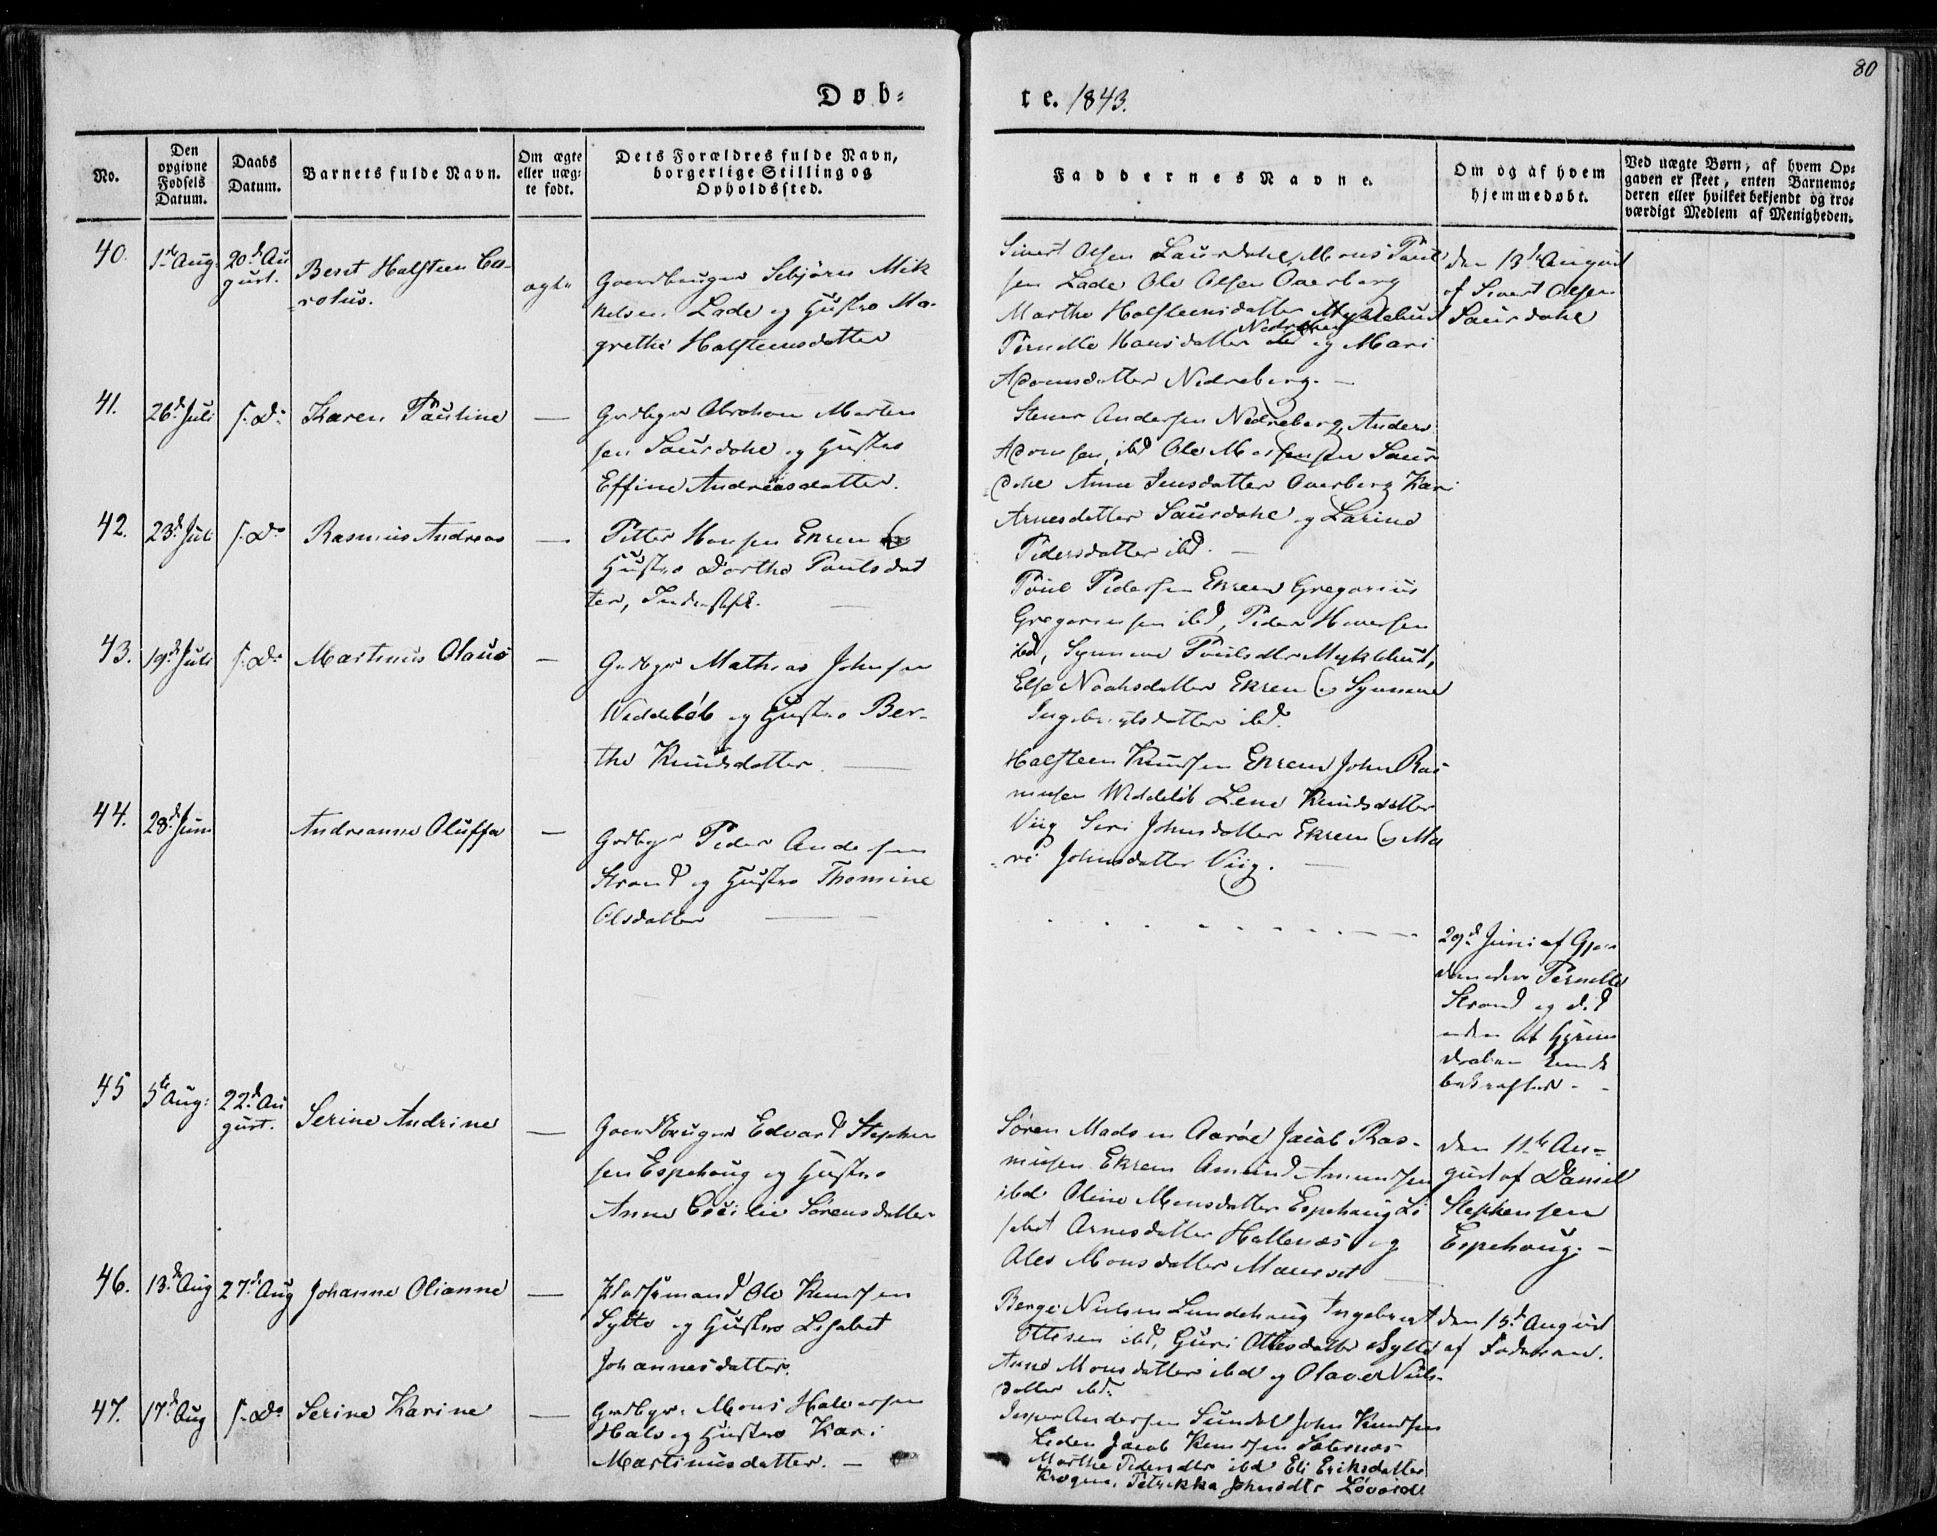 80
Døb-
te. 1843.
No.
Den opgivne Fødsels Datum.
Daabs Datum.
Barnets fulde Navn.
Om ægte eller uægte født.
Dets Forældres fulde Navn, borgerlige Stilling og Opholdssted.
Faddernes Navne.
Om og af hvem hjemmedøbt.
Ved uægte Børn, af hvem Opgaven er skeet, enten Barnemoderen eller hvilket bekjendt og troværdigt Medlem af Menigheden.
40.
1ste Aug.
20de Au
gust.
Beret Halsteen Ca-
rolus.
ægte
Gaardbruger Sebjørn Mik
kelsen Lade og Hustro Ma-
grethe Halsteensdatter
Sivert Olsen Saurdahl, Mons Paul
sen Lade Ole Olsen Overberg
Marthe Halsteensdatter Myklebust
Nedreberg
Pernelle Hansdatter og Mari
Adamsdatter Nedreberg. —
den 13de August
af Sivert Olsen
Saurdahl
41.
26de Juli
s. D.
Karen Pauline
—
Grdbgr Abraham Morten
sen Saurdahl og Hustro
Effine Andreasdatter.
Stener Andersen Nedreberg, Anders
Adamsen, ibd Ole Mortensen Saur
dahl Anne Jensdatter Overberg Kari
Arnesdatter Saurdahl og Larine
Pedersdatter ibd. —
42.
23de Juli
s. D.
Rasmus Andreas
—
Petter Hansen Ekrem og
Hustro Dorthe Paulsdat
ter, Inderstfolk. —
Poul Pedersen Ekrem Gregorius
Gregoriussen ibd, Peder Iversen
ibd, Synneve Poulsdtr Myklebust,
Else Noahsdatter Ekrem og Synneve
Ingebrigtsdatter ibd.
43.
19de Juli
s. D.
Martinus Olaus
—
Grdbgr Mathias Johnsen
Weddeløb og Hustro Ber-
the Knudsdatter. —
Halsteen Knudsen Ekrem John Ras
musen Weddeløb Lene Knudsdatter
Viig Siri Johnsdatter Ekrem og Ma
ri Johnsdatter Viig. —
44.
28de Juni
Andreanne Oluffa
—
Grdbgr Peder Andersen
Strand og Hustro Thomine
Olsdatter —
29de Juni af Gjor
demoder Pernelle
Strand og død
inden
bekræftet. -
45
5te Aug:
22de Au
gust.
Serine Andrine
—
Gaardbruger Edvard Stephen
sen Espehaug og Hustro
Anne Cecilie Sørensdatter
Søren Madsen Aarøe Jacob Ras-
musen Ekrem Amund Amundsen
ibd Oline Monsdatter Espehaug Li
sebet Arnesdatter Hollenæs og
Ales Monsdatter Maurset
den 11te Au-
gust af Daniel
Stephensen
Espehaug. —
46.
13de Aug
27de Aug
Johanne Olianne
—
Pladsmand Ole Knudsen
Sylte og Hustro Lisabet
Johannesdatter.
Berge Nielsen Lundehaug Ingebrigt
Ottesen ibd, Guri Ottesdatter Sylte
Anne Monsdatter ibd og Olave Niels-
datter ibd.
den 15de August
af Faderen.
47.
17de Aug
s. D.
Serine Karine
—
Grdbgr. Mons Halvorsen
Hals og Hustro Kari
Martinusdatter. —
Jesper Andersen Sundal John Knudsen
Lieden Jacob Knudsen Sæternæs
Marthe Pedersdtr ibd Eli Eriksdatter
Krogen, Petrikka Johnsdtr Løvoide